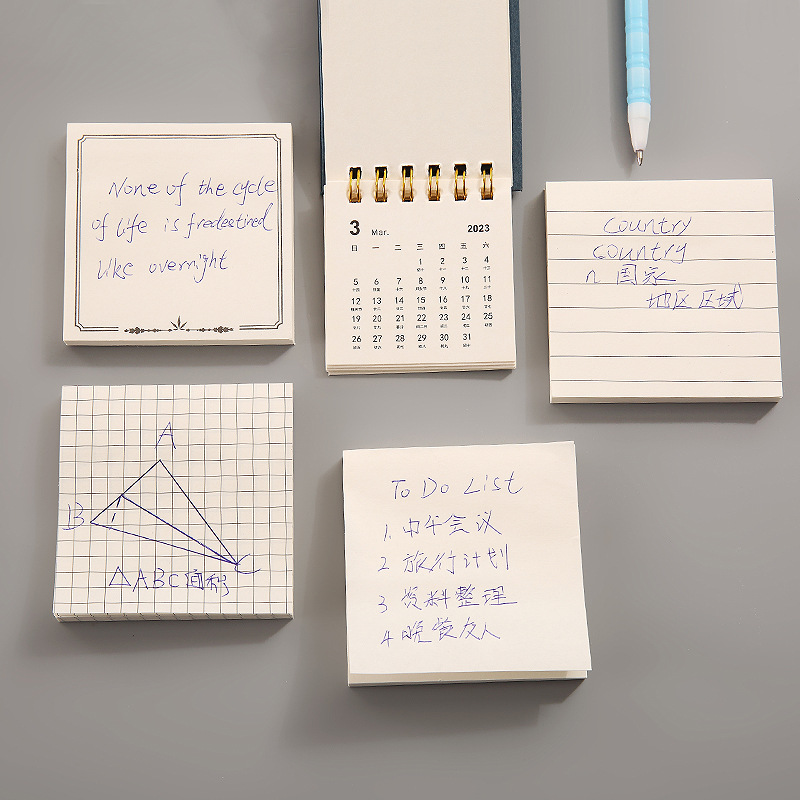 None of the cycle
of life is fredeetired
like overnight
3 Mar. 2023
日 一 二 三 四 五 六
1 2 3 4
5 6 7 8 9 10 11
12 13 14 15 16 17 18
19 20 21 22 23 24 25
26 27 28 29 30 31
country
country
n 国家
地区 区域
A
B
C
△ABC面积
To Do List
1. 中午会议
2 旅行计划
3 资料整理
4 晚餐友人